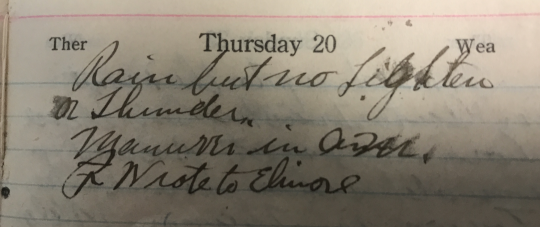 Ther Thursday 20 Wea
Rain but no Lighten
or Thunder.
in
Wrote to Elinore